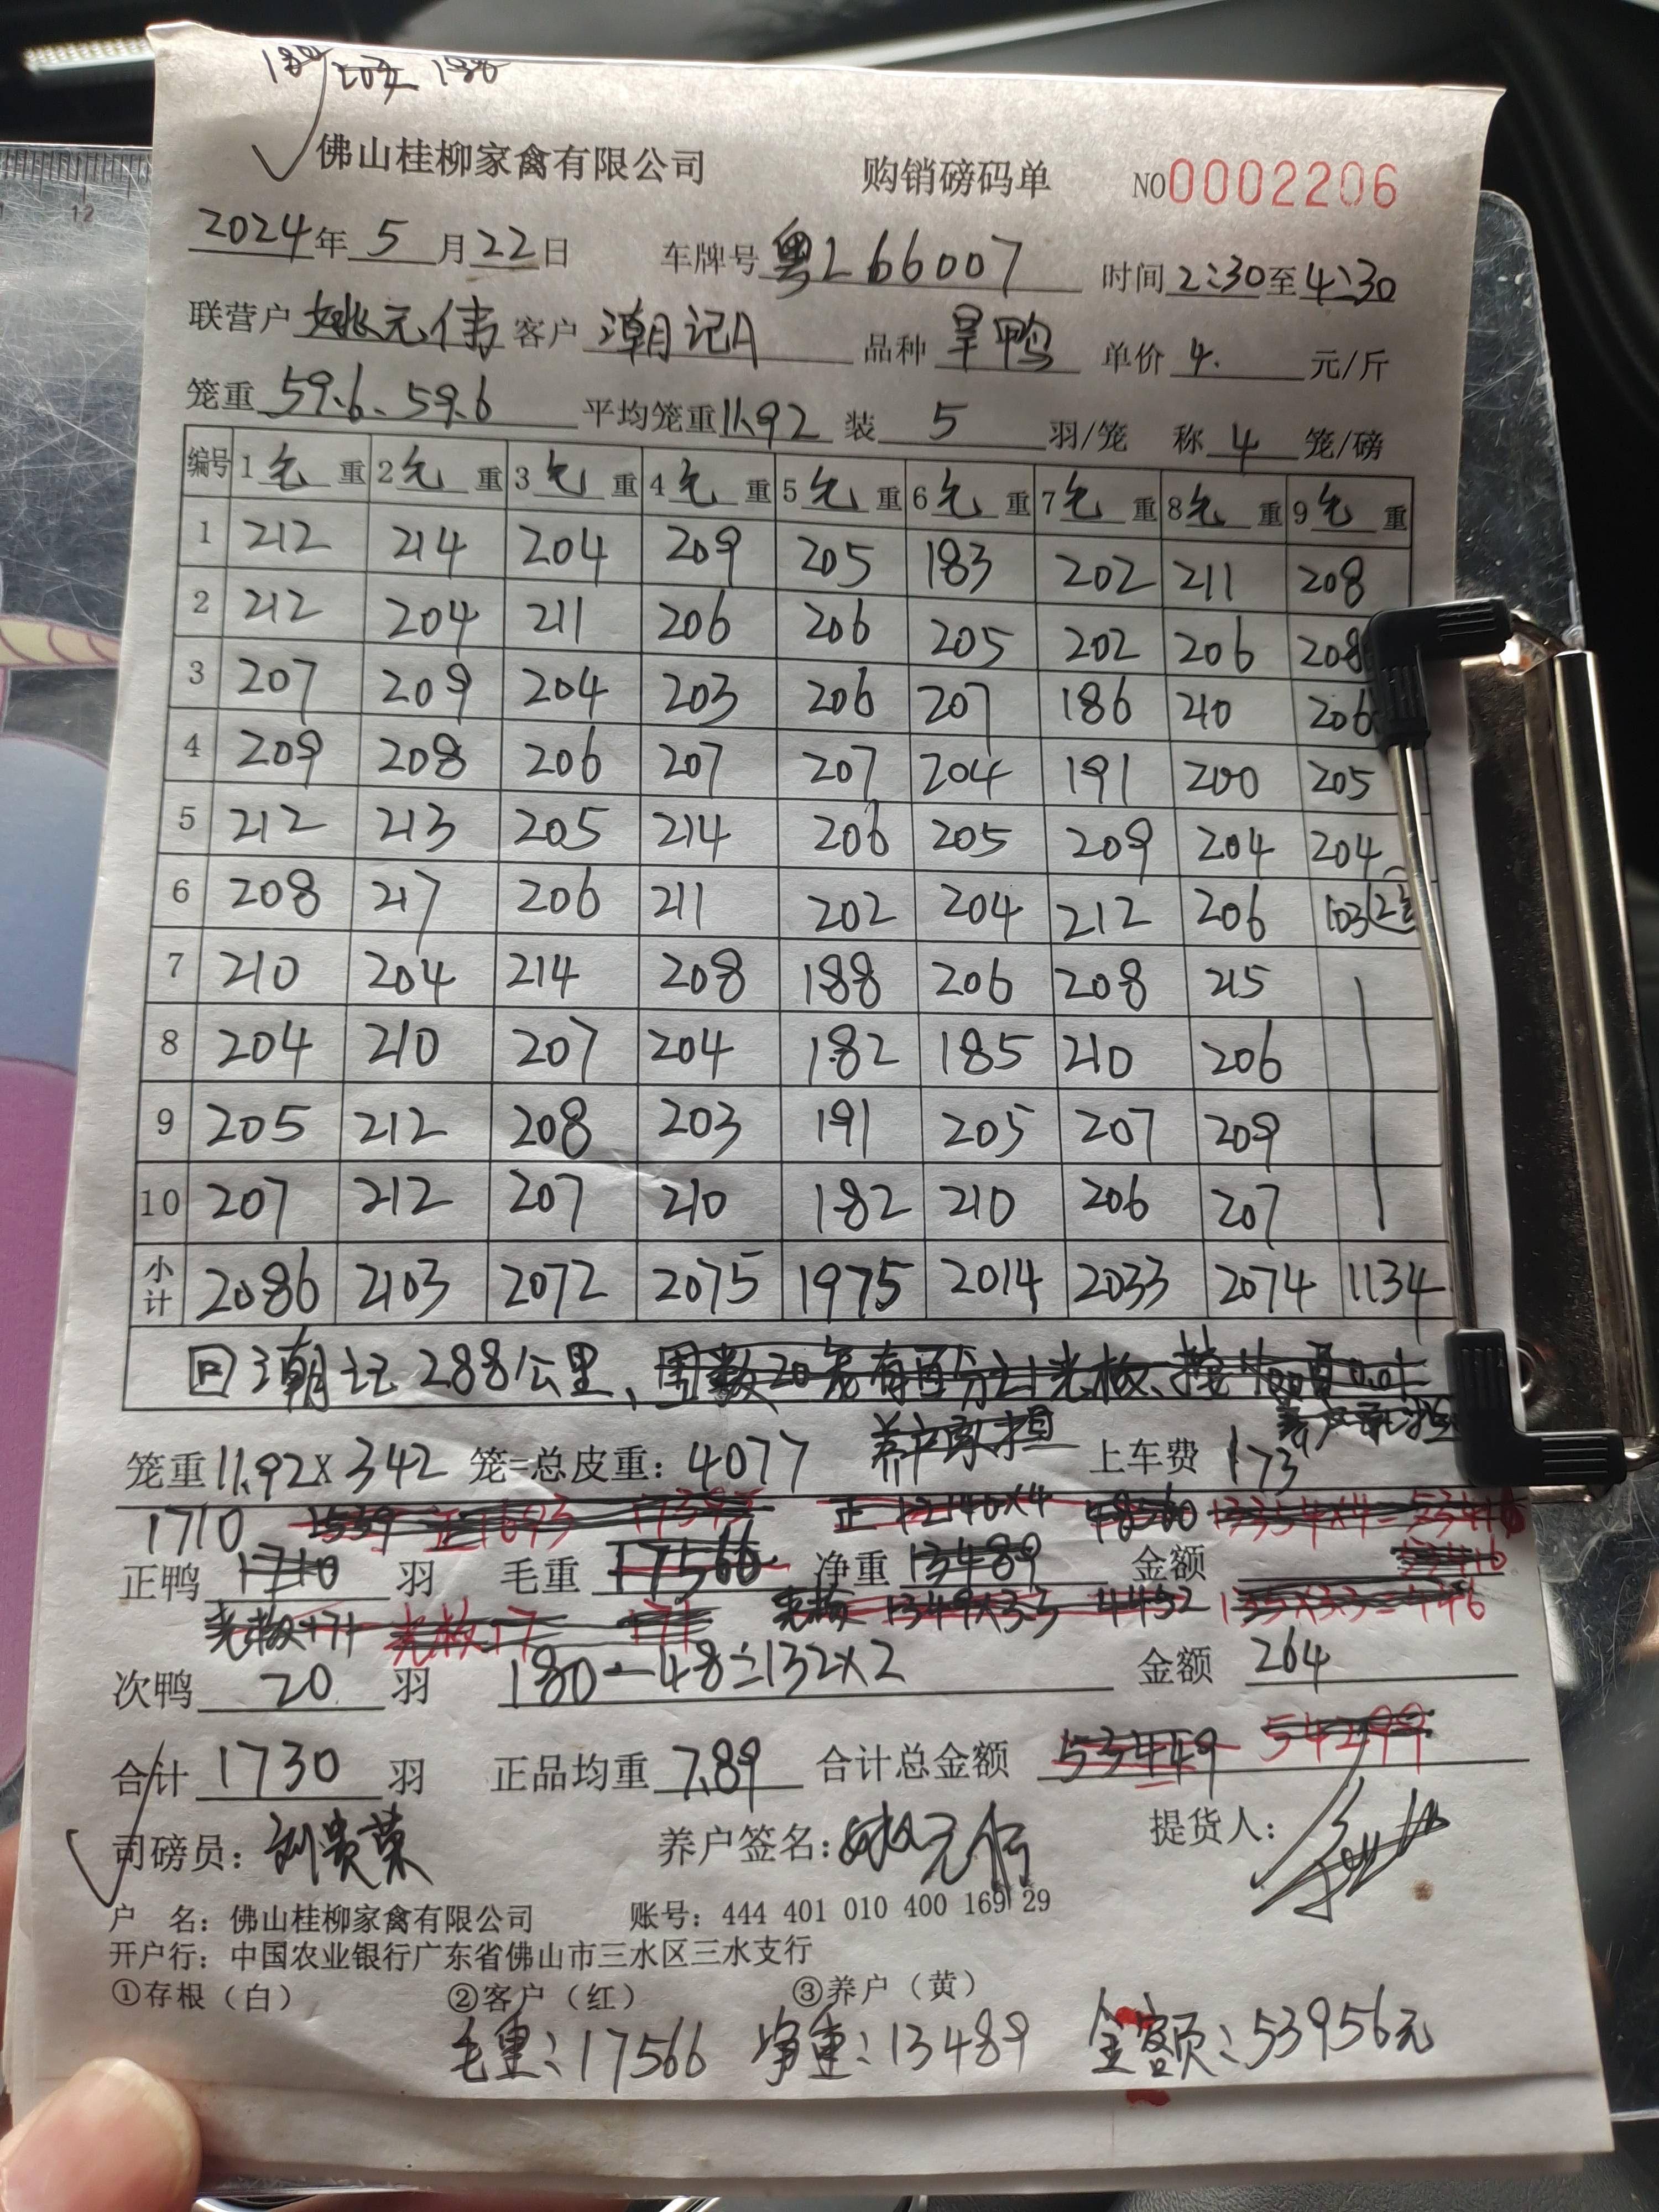 佛山桂柳家禽有限公司 购销磅码单 NO0002206
2024年 5 月 22 日 车牌号 粤L66007 时间 2:30 至 4:30
联营户 姚元伟 客户 潮记A 品种 旱鸭 单价 4. 元/斤
笼重 59.6、59.6 平均笼重 11.92 装 5 羽/笼 称 4 笼/磅
编号 1 毛 重 2 毛 重 3 毛 重 4 毛 重 5 毛 重 6 毛 重 7 毛 重 8 毛 重 9 毛 重
1 212 214 204 209 205 183 202 211 208
2 212 204 211 206 206 205 202 206 208
3 207 209 204 203 206 207 186 210 206
4 209 208 206 207 207 204 191 200 205
5 212 213 205 214 206 205 209 204 204
6 208 217 206 211 202 204 212 206 103(2笼
7 210 204 214 208 188 206 208 215
8 204 210 207 204 182 185 210 206
9 205 212 208 203 191 205 207 209
10 207 212 207 210 182 210 206 207
小计 2086 2103 2072 2075 1975 2014 2033 2074 1134
回潮记288公里、
笼重 11.92 X 342 笼=总皮重: 4077 上车费 173
1710
正鸭 1710 羽 毛重 17566 净重 13489 金额
次鸭 20 羽 180-48=132X2 金额 264
合计 1730 羽 正品均重 7.89 合计总金额 53449 54299
司磅员: 刘贵荣 养户签名: 姚元伟 提货人:
户 名: 佛山桂柳家禽有限公司 账号: 444 401 010 400 169 29
开户行: 中国农业银行广东省佛山市三水区三水支行
①存根(白) ②客户(红) ③养户(黄)
毛重:17566 净重:13489 金额:53956元